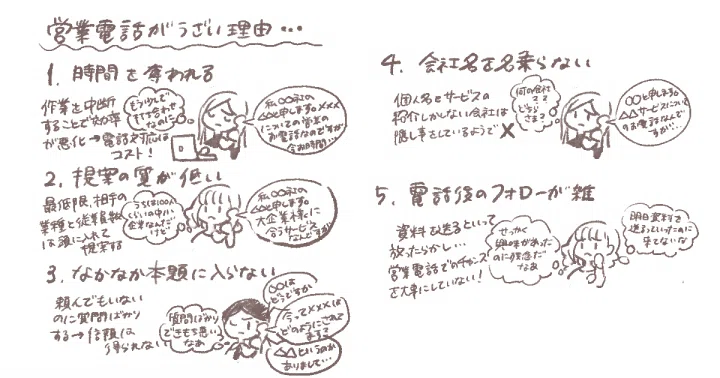 営業電話がうざい理由…
1. 時間を奪われる
作業を中断
することで効率
が悪化→電話対応は
コスト！
もう少しで
すてき合わせ
なのにな
私〇〇社の
△△と申します。×××
についての営業の
お電話なのですが
今お時間…
2. 提案の質が低い
最低限、相手の
業種と従業員数
は頭に入れて
提案する
うちは100人
くらいの中小
企業なんだ
けど
私〇〇社の
△△と申します。
大企業様に
合うサービス
なんですが
3. なかなか本題に入らない
頼んでもいない
のに質問ばかり
する→信頼は
得られない
質問ばかり
できもち悪い
なあ
〇〇は
どうですか
今って×××は
どのようにされて
ますか
△△というのが
ありまして…
4. 会社名を名乗らない
個人名とサービスの
紹介しかしない会社は
隠し事をしているようで×
何の会社
？？
どちら
さま？
〇〇と申します。
△△サービスについて
のお電話なんで
すが…
5. 電話後のフォローが雑
資料を送るといって
放ったらかし…
営業電話でのチャンス
を大事にしていない！
せっかく
興味があった
のに残念だ
なあ
明日資料を
送るっていったのに
来てないな